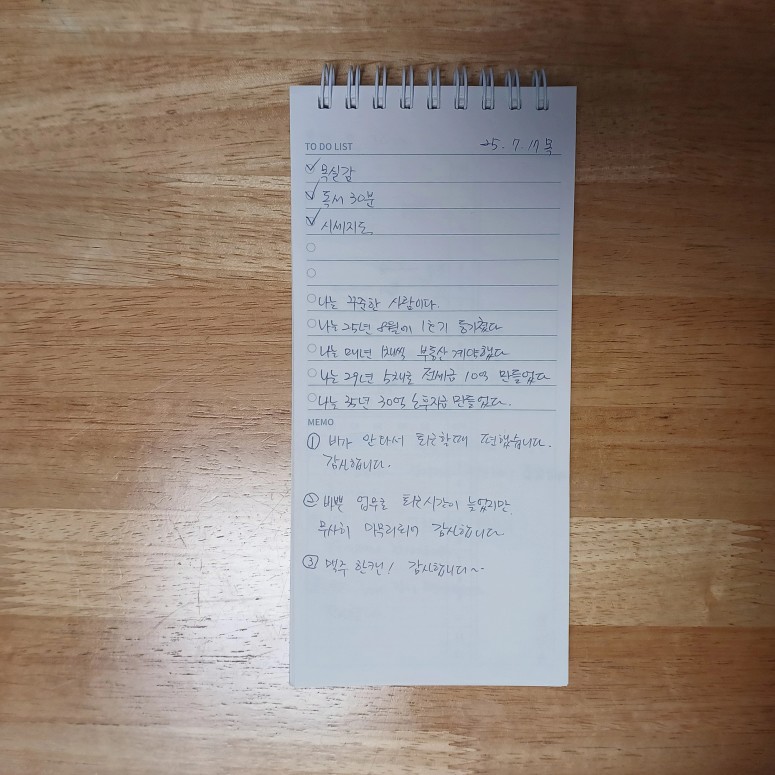 TO DO LIST 25. 7. 17 목
목실감
독서 30분
시세지도
나는 꾸준한 사람이다.
나는 25년 8월에 1호기 등기쳤다
나는 매년 1채씩 부동산 계약했다
나는 29년 5채로 전세금 10억 만들었다
나는 35년 30억 만들었다.
MEMO
① 비가 안 와서 퇴근할때 편했습니다.
감사합니다.
② 바쁜 업무로 퇴근시간이 늦었지만,
무사히 마무리되어 감사합니다
③ 맥주 한캔! 감사합니다~